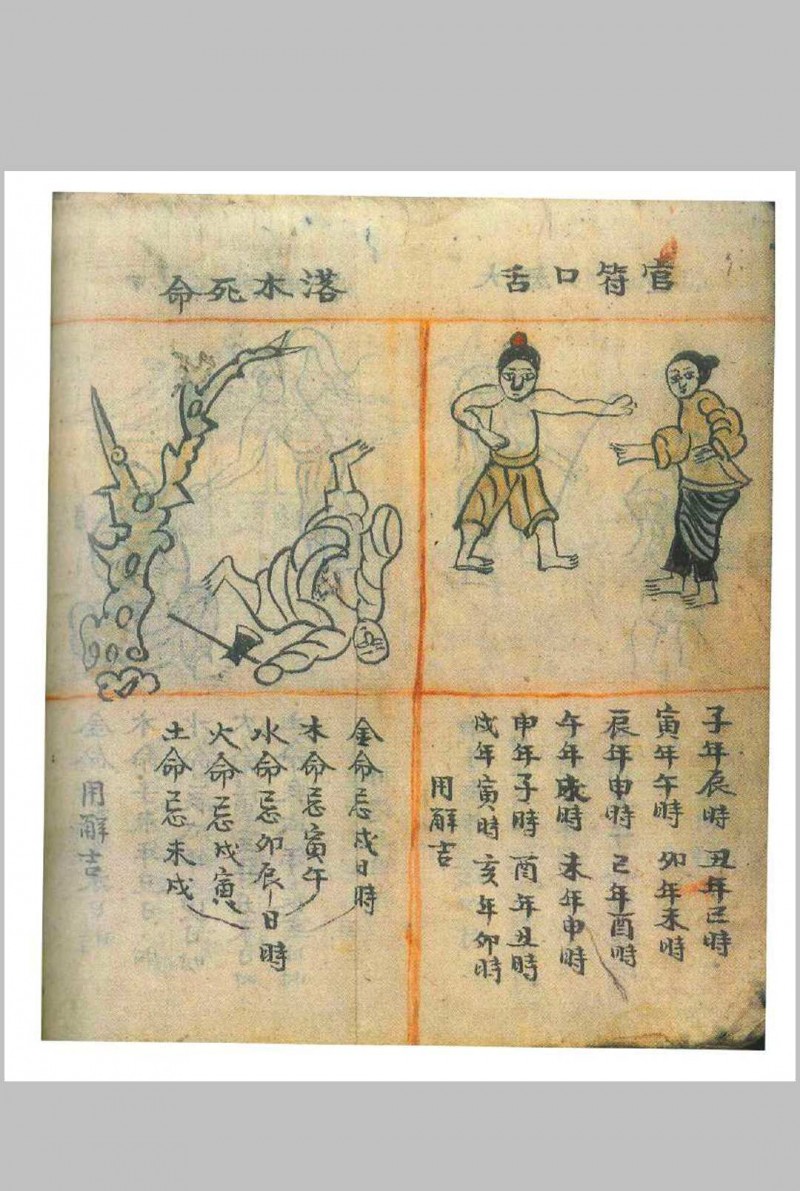 官符口舌
子年辰時 丑年巳時
寅年午時 卯年未時
辰年申時 巳年酉時
午年戌時 未年申時
申年子時 酉年丑時
戌年寅時 亥年卯時
用解吉
落水死命
金命忌戌日時
木命忌寅午
水命忌卯辰日時
火命忌戌寅
土命忌未戌
用解吉